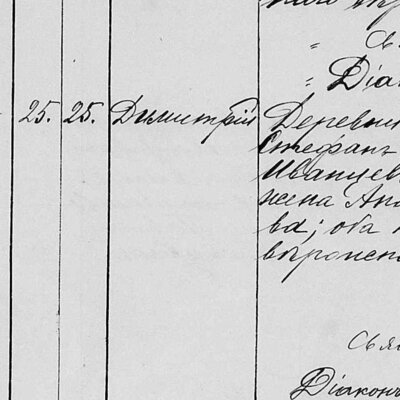 " Свя
" Діак
25. 25. Димитрій Деревни
Стефанъ
Иванцев
жена Ан
ва; оба п
вѣроисп
Свя
Діаконъ